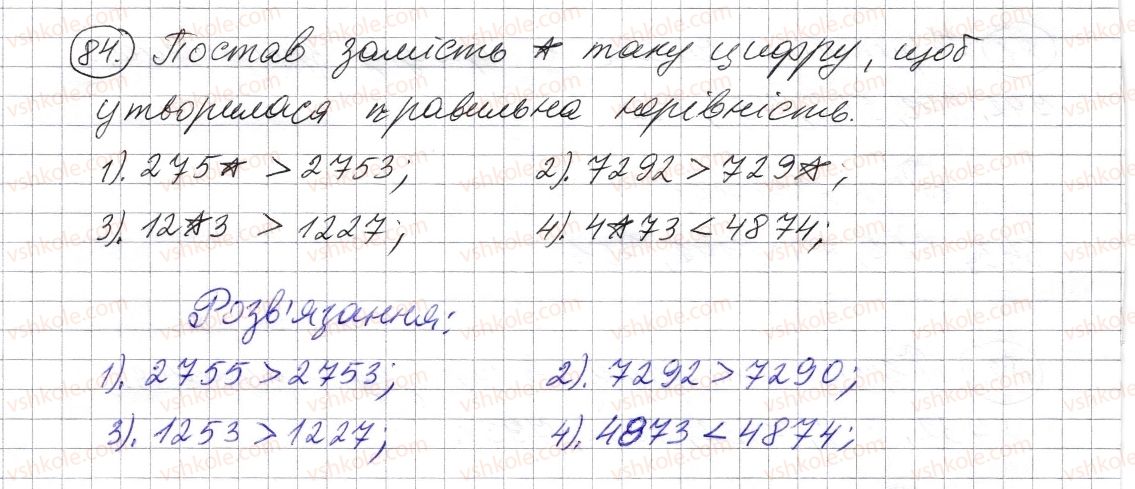 84. Постав замість * таку цифру, щоб
утворилася правильна нерівність.
1). 275* > 2753; 2). 7292 > 729*;
3). 12*3 > 1227; 4). 4*73 < 4874;
Розв'язання:
1). 2755 > 2753; 2). 7292 > 7290;
3). 1253 > 1227; 4). 4873 < 4874;
vshkole.com